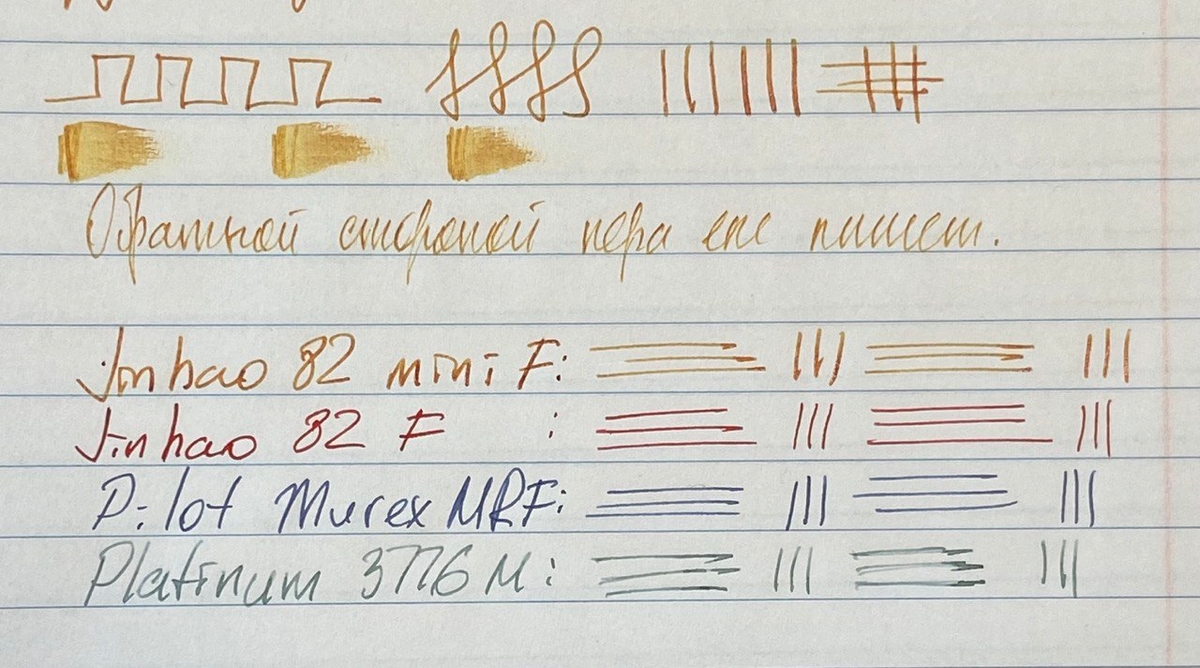 Обратной стороной пера не пишет.
Jinhao 82 mini F:
Jinhao 82 F :
Pilot Murex MRF:
Platinum 3776 M: